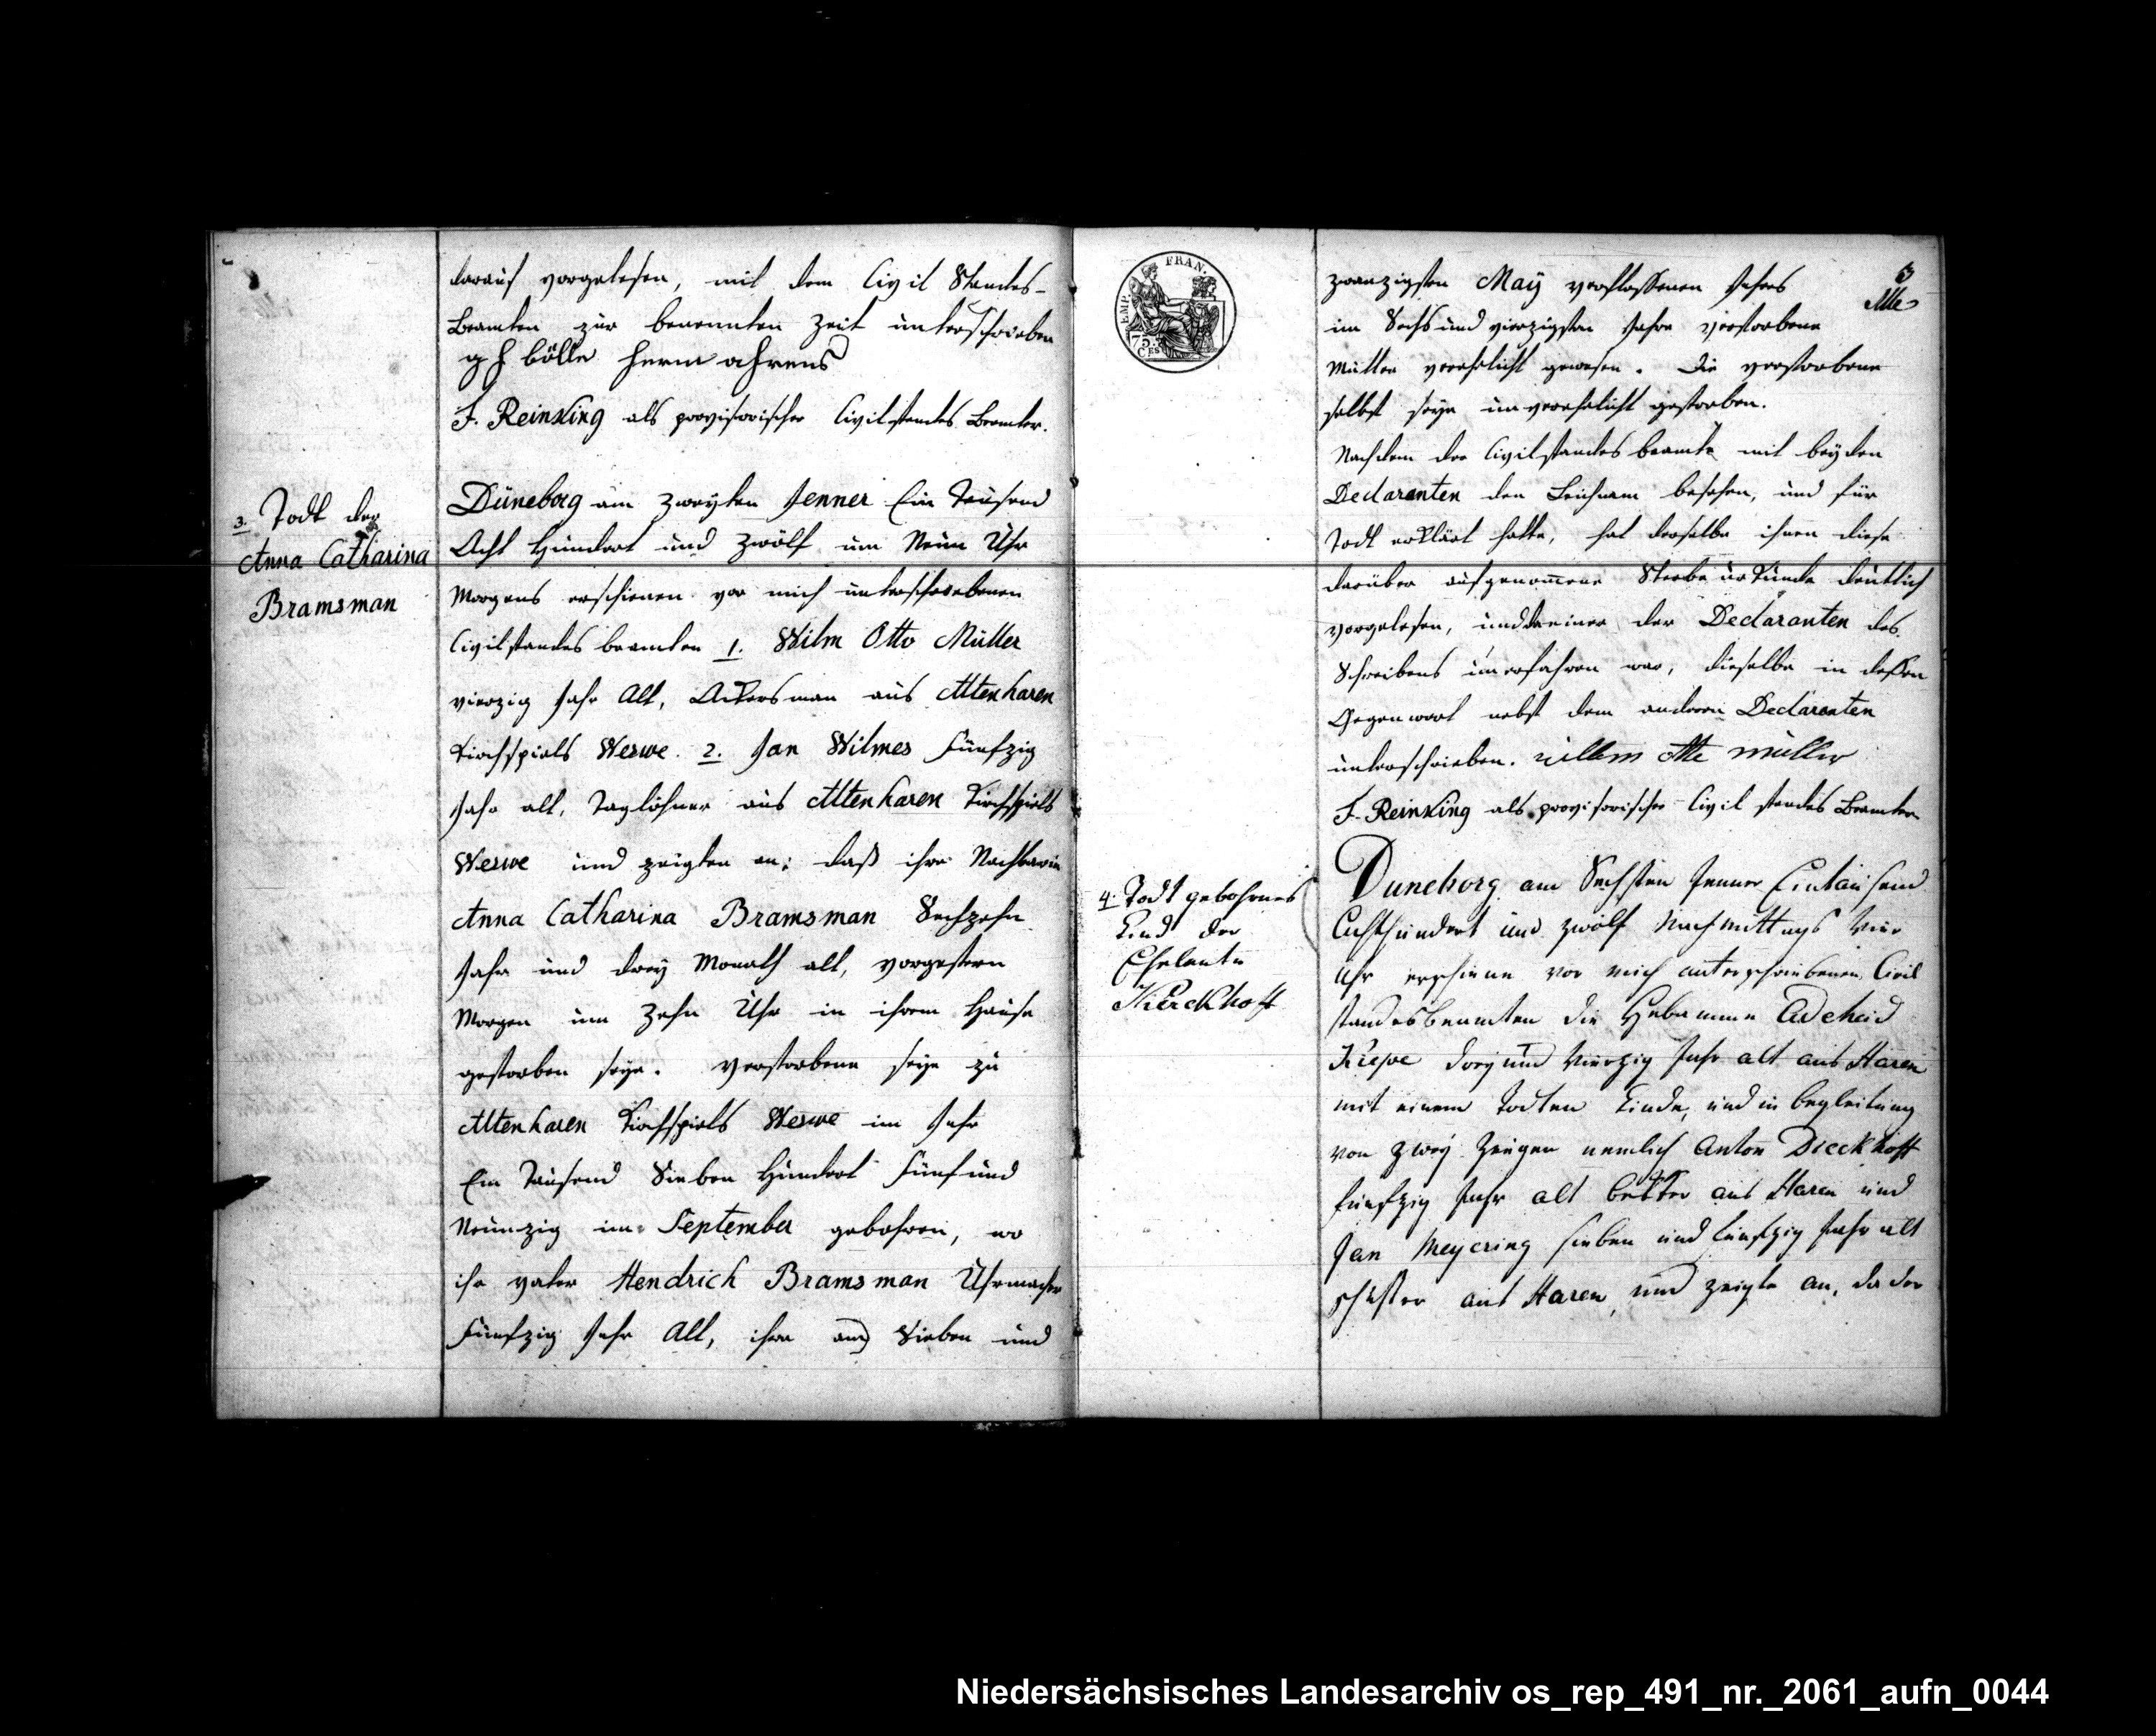 darauf vorgelesen, mit dem Civil Standes-
Beamten zur benannten Zeit unterschrieben
g h bölle herm ahrens
F. Reinking als provisorischer Civilstandes Beamter.
3. Todt der
Anna Catharina
Bramsman
Düneborg am zweyten Jenner Ein Tausend
Acht Hundert und zwölf um Neun Uhr
Morgens erschienen vor mich unterschriebenen
Civilstandes beamten 1. Wilm Otto Müller
vierzig Jahr Alt, Ackersman aus Altenharen
Kirchspiels Wesuwe. 2. Jan Wilmes Fünfzig
Jahr alt, Taglöhner aus Altenharen Kirchspiels
Wesuwe und zeigten an: daß ihre Nachbarin
Anna Catharina Bramsman Sechzehn
Jahr und drey Monath alt, vorgestern
Morgen um Zehn Uhr in ihrem Hause
gestorben seye. Verstorbene seye zu
Altenharen Kirchspiels Wesuwe im Jahr
Ein Tausend Sieben Hundert Fünf und
Neunzig im September gebohren, wo
ihr vater Hendrich Bramsman Uhrmacher
Fünfzig Jahr Alt, ihre am Sieben und
EMP. FRAN.
75.
CES
3
zwanzigsten May verfloßenen Jahres
im Sechs und vierzigsten Jahre verstorbene
Mutter verehelicht gewesen. Die verstorbene
selbst seye unverehelicht gestorben.
Nachdem der Civilstandes beamte mit beyden
Declaranten den Leichnam besehen, und für
Todt erklärt hatte, hat derselbe ihnen diese
darüber aufgenommene Sterbe urkunde deutlich
vorgelesen, und da einer der Declaranten des
Schreibens unerfahren war, dieselbe in deßen
Gegenwart nebst dem anderen Declaranten
unterschrieben. willem otte müller
F. Reinking als provisorischer Civil standes Beamter
4. Todt gebohrnes
Kind der
Eheleute
Kierckhoff
Duneborg am Sechsten Jenner Eintausend
Achthundert und zwölf Nachmittags Vier
Uhr erschiene vor mich unterschriebenen Civil
standesbeamten die Hebamme Adeheid
Kiepe drey und Vierzig Jahr alt aus Haren
mit einem Todten Kinde, und in begleitung
von zwey Zeugen nemlich Anton Dieckhoff
fünfzig Jahr alt aus Haren und
Jan Meyering sieben und fünfzig Jahr alt
schuster aus Haren, und zeigte an, da der
Niedersächsisches Landesarchiv os_rep_491_nr._2061_aufn_0044